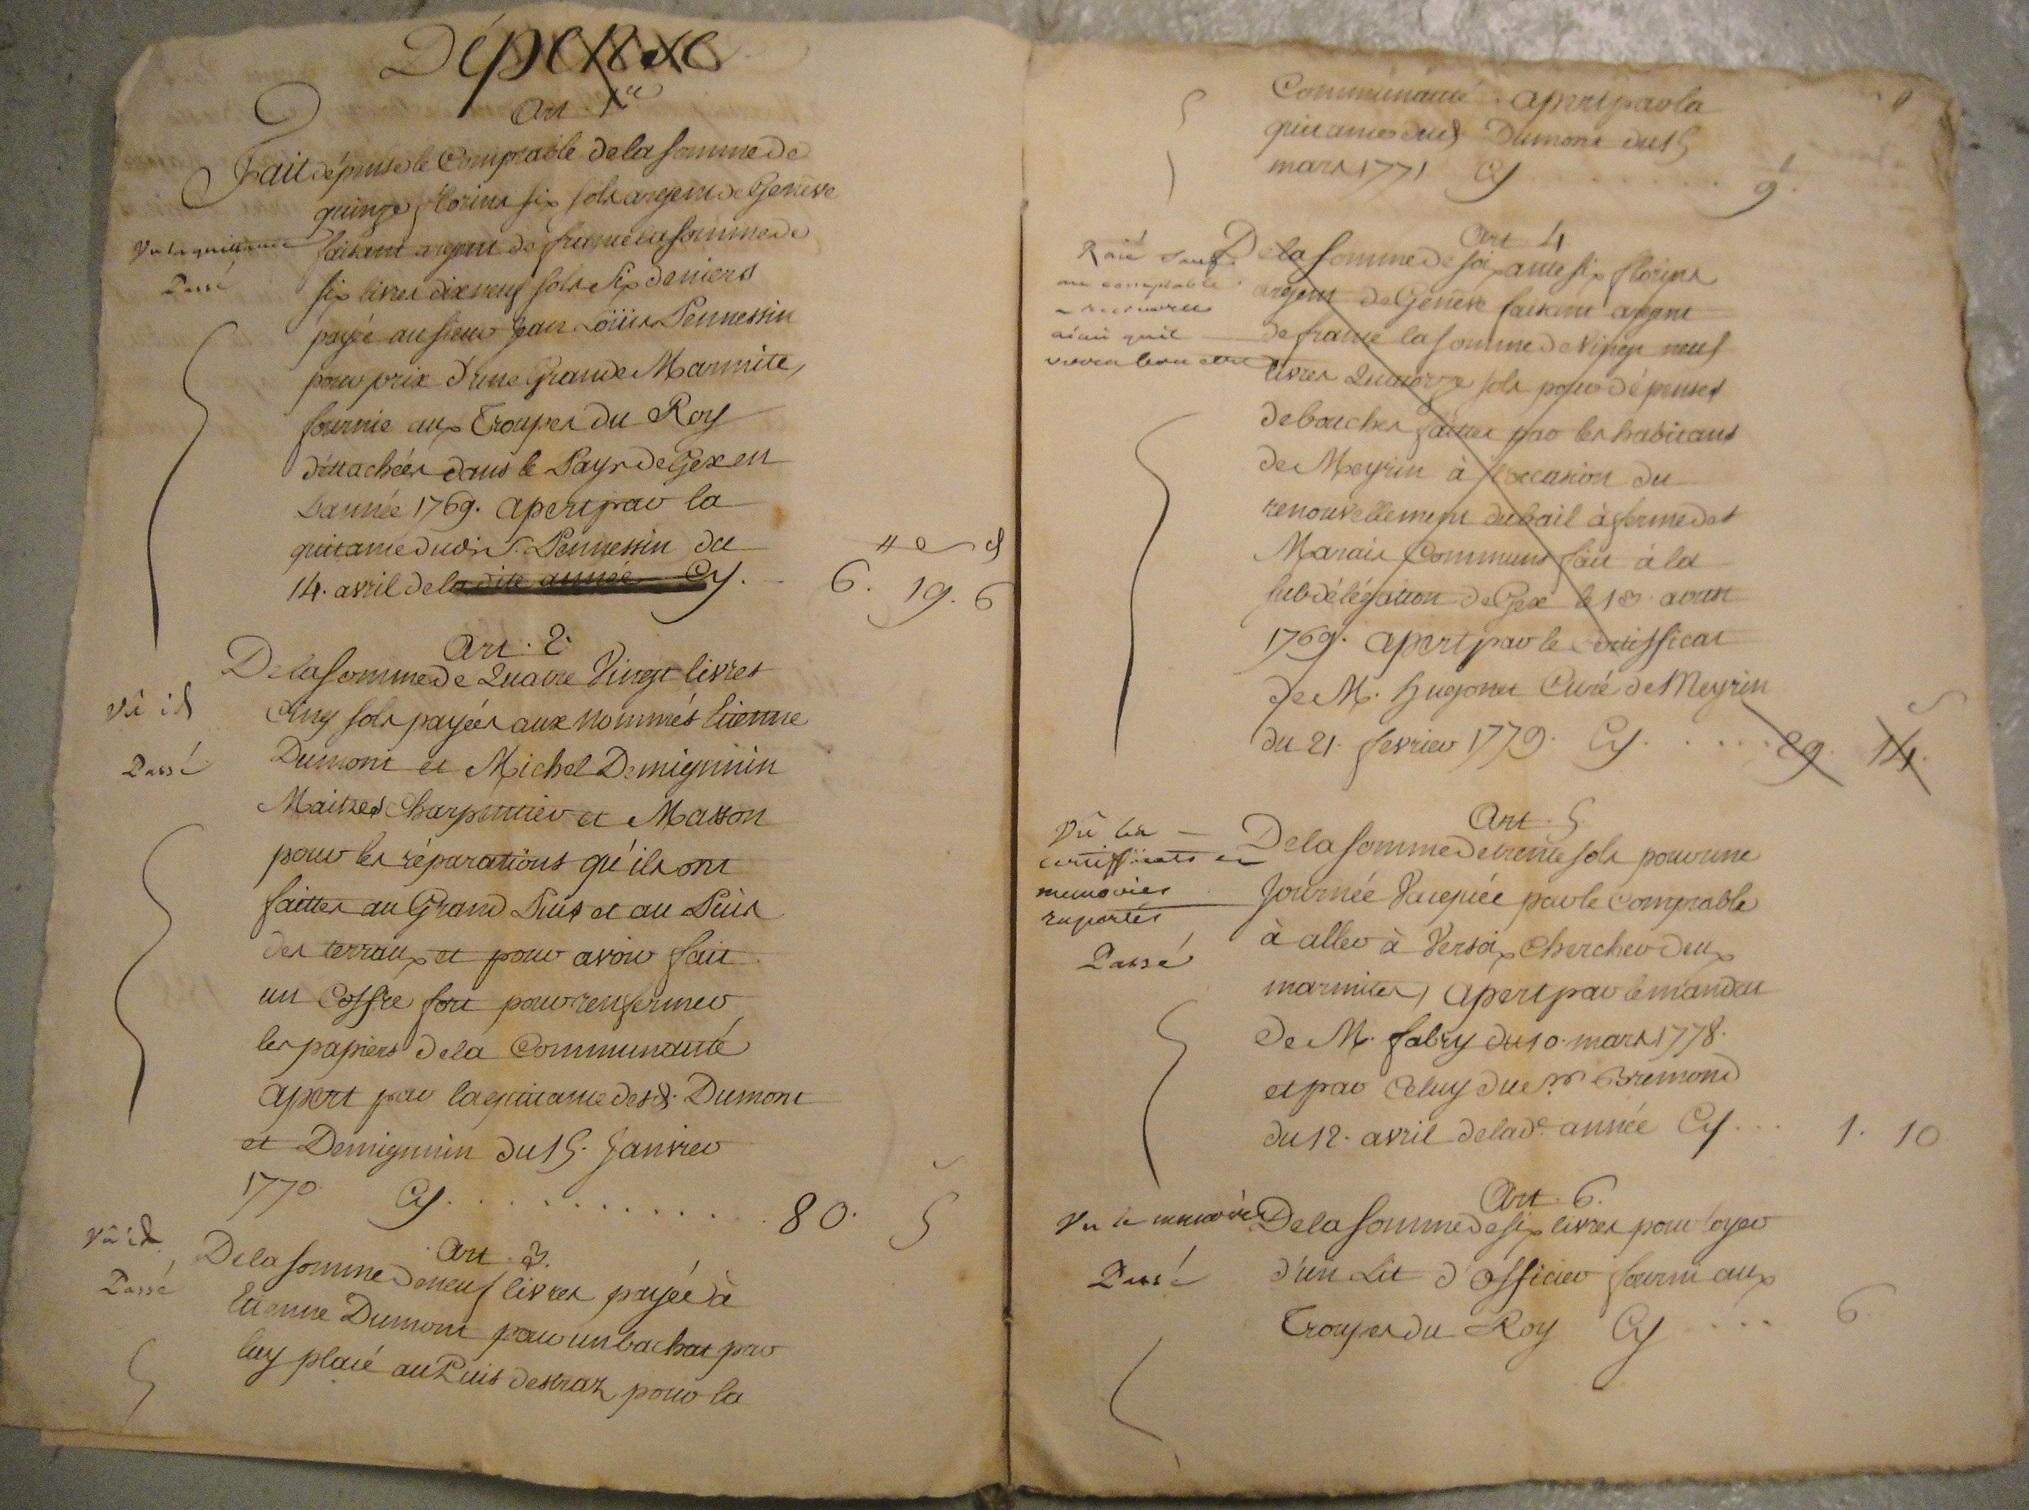 Dépense
Art. 1er
Fait dépense le Comptable de la somme de
quinze florins six sols argent de Genève
Vu la quittance
faisant argent de france la somme de
Passé
six livres dix neuf sols six deniers
payée au sieur Jean Loüis Pennessin
pour prix d'une Grande Marmite,
fournie aux Troupes du Roy
détachées dans le Pays de Gex en
L'année 1769. apert par la
quitance dudit Sr. Pennessin du
14. avril de la dite année Cy. 6. 19. 6
Art. 2.
De la somme de Quatre Vingt livres
Vû id
Cinq sols payées aux nommés Etienne
Passé
Dumont et Michel Demignuin
Maitres Charpentier et Masson
pour les réparations qu'ils ont
faittes au Grand Puis et au Puis
des terraux et pour avoir fait
un Coffre fort pour renfermer
les papiers de la Communauté
apert par la quitance desds. Dumont
et Demignuin du 15. Janvier
1770. Cy. . . . . . . . . . . . . 80. 5
Art. 3.
Vû id
De la somme de neuf livres payée à
Passé
Etienne Dumont pour un bachat par
luy placé au Puis destraz pour la
Communauté apert par la
quitance dud Dumont du 15
mars 1771 Cy . . . . . . . . 9.
Art. 4
Raié sauf
au comptable
a recouvrer
ainsi quil
verra bon etre
De la somme de soixante six florins
argent de Genève faisant argent
de france la somme de Vingt neuf
livres Quatorze sols pour dépenses
de bouches faittes par les habitans
de Meyrin à l'occasion du
renouvellement du bail à ferme des
Marais Communs fait à la
subdélégation de Gex le 18. aoust
1769. apert par le Certifficat
de M. Hugonet Curé de Meyrin
du 21. fevrier 1779. Cy. . . . . . 29. 14.
Art. 5.
Vû les
certifficats et
memoires
raportés
Passé
De la somme de trente sols pour une
Journée Vacquée par le Comptable
à aller à Versoix Chercher deux
marmites, apert par le mandat
de M. fabry du 10. mars 1778.
et par Celuy du Sr. Bremond
du 12. avril de lade. année Cy . . . 1. 10
Art. 6.
Vu le memoire
Passé
De la somme de six livres pour loyer
d'un Lit d'officier fourni aux
Troupes du Roy Cy . . . . 6.